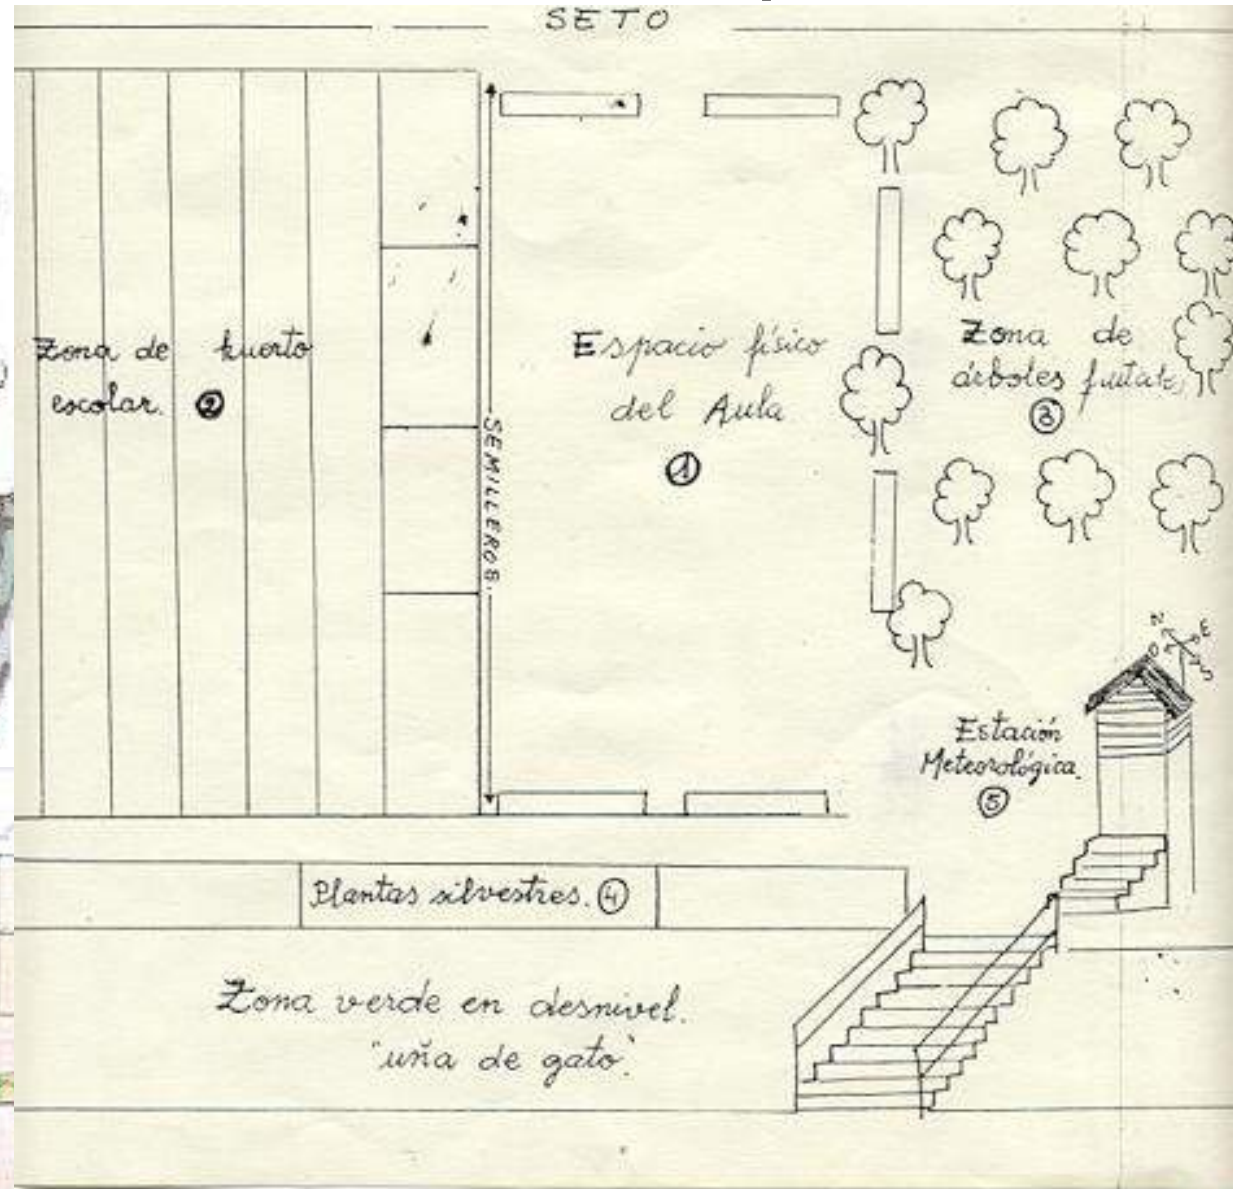 SETO
Zona de huerto
escolar. 2
SEMILLEROS.
Espacio físico
del Aula
1
Zona de
árboles frutales
3
N
E
O
S
Estación
Meteorológica.
5
Plantas silvestres. 4
Zona verde en desnivel.
"uña de gato".